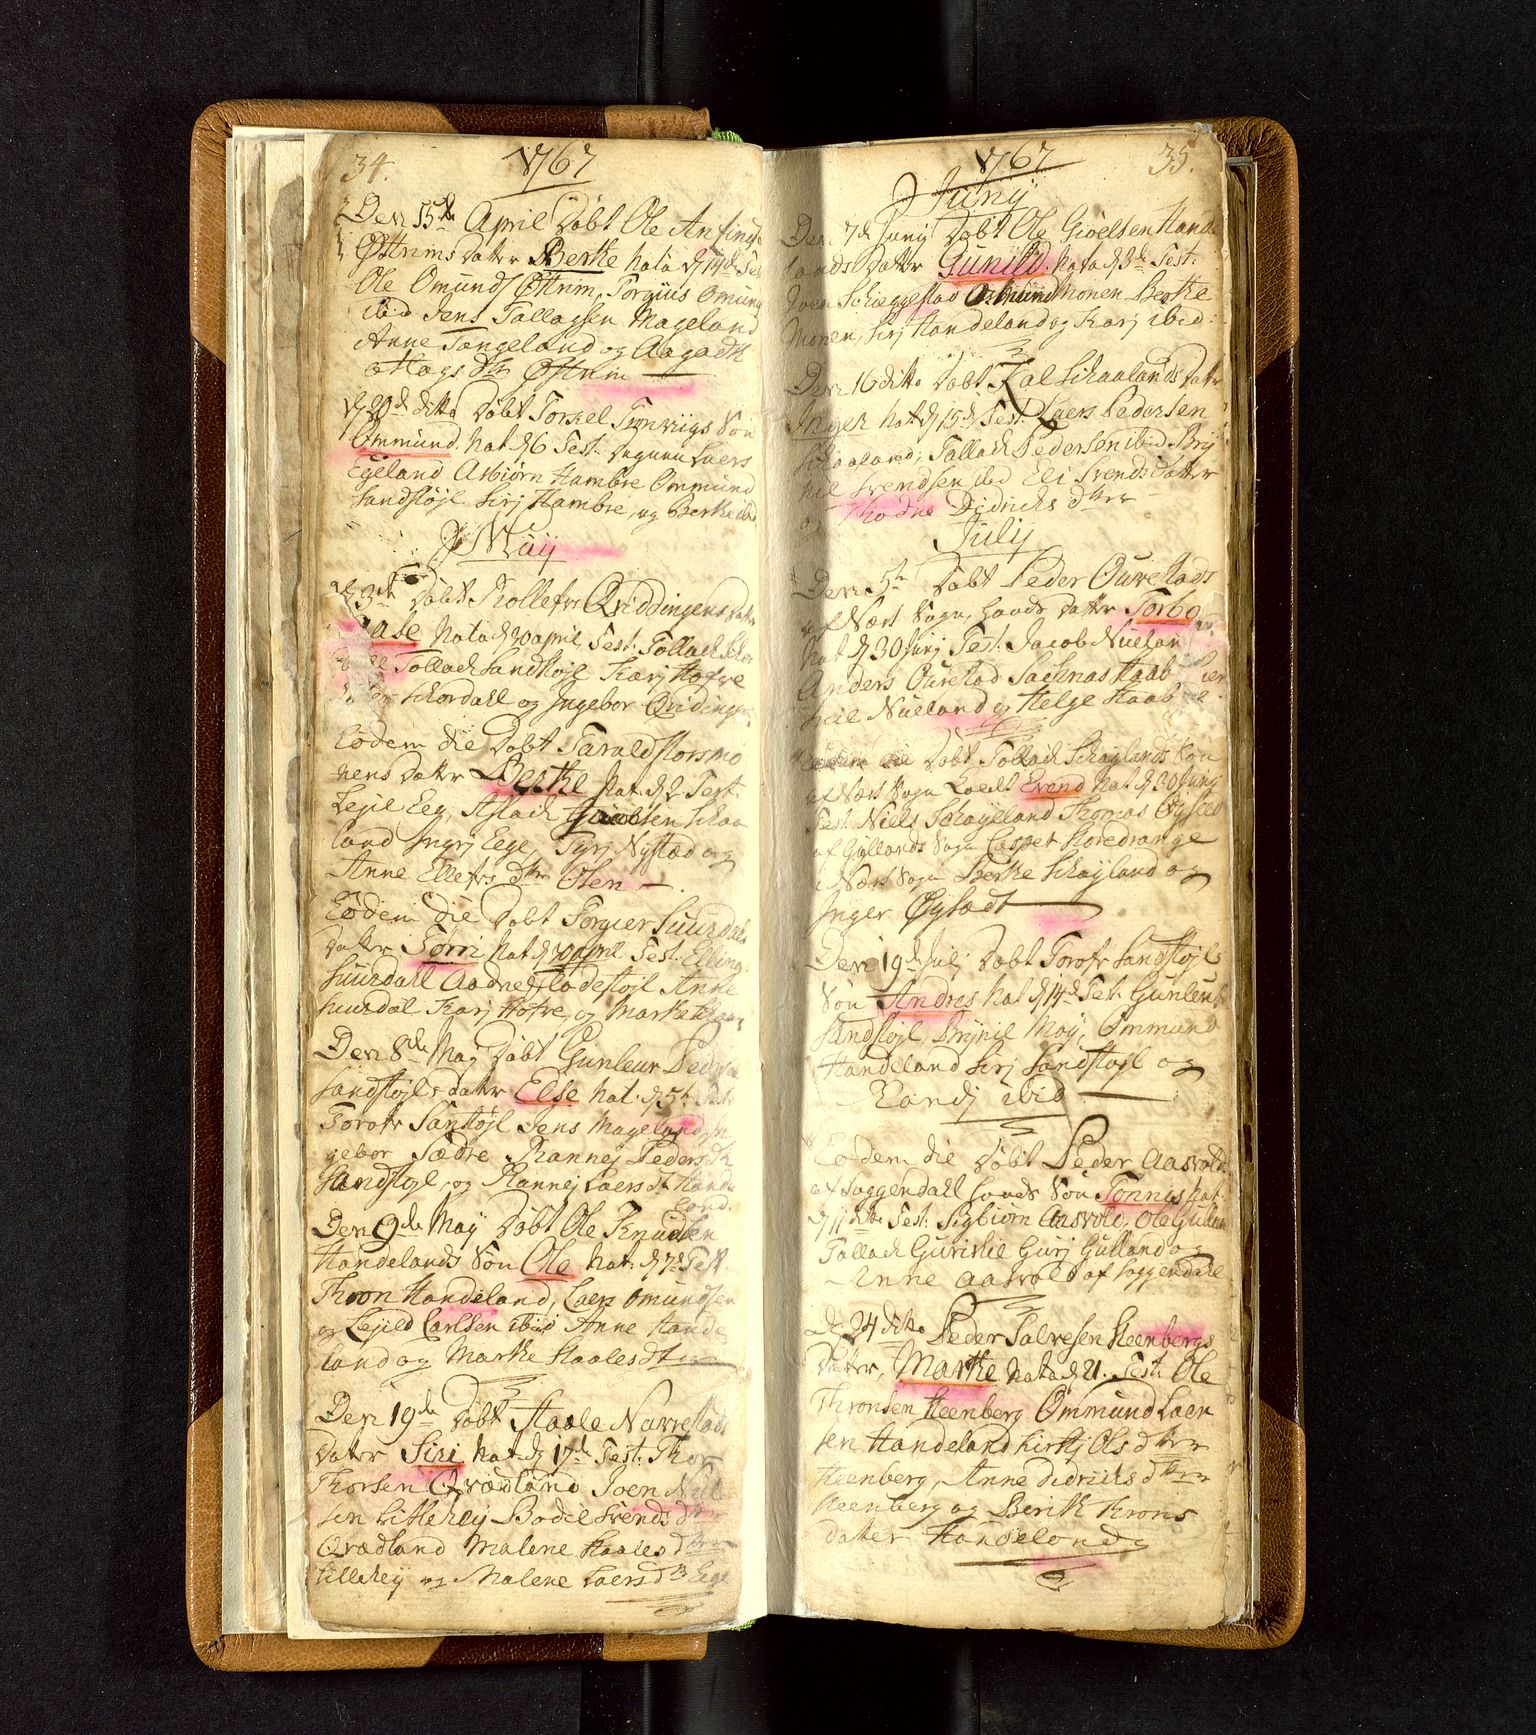 34.
1767
Den 15de April Døbt Ole Anfinds
Østrems datter Berthe nata d 14de Test
Ole Omunds Østrem, Torgius Omund
ibid Jens Tallagsen Mageland
Anne Tangeland og Aagadh
Hogs dtr Østrem
d 20de ditto Døbt Torkel Tronvigs Søn
Ommund nat d 6 Test. Dagunn Laers
Egeland Asbiørn Hambre Ommund
Sandstøjl Sirj Hambre, og Berthe ibid
Maij
d 3de Døbt Rollefs Qviddingens datr
Aase nata d 30 april, Test: Tollack Skor
Tollack Sandstøjl Karj Hofve
Skordall og Ingebor Qvidingen
Eodem die Døbt Tarald Storsmo
nens datter Berthe nat. d 2 Test.
Lejel Eeg, Aslack Jacobsen Skaa
land Ingrj Eege, Syrj Nystad og
Anne Ellefs dtr Olsen
Eodem die Døbt Torger Suurdals
datter Torri nat d 30 april Test. Elling
Suurdall Aadne Lædestøjl Anne
Suurdal Karj Hofve og Marthe
Den 8de Maj Døbt Gunleur Peders
Sandstøjls datter Else nat. d 5te Test
Torofr Santøjl Jens Mageland, In
gebor Sædre Rannej Peders dtr
Sandstøjl, og Rannej Laers dt Hande
land.
Den 9de Maij Døbt Ole Knudsen
Handelands Søn Ole nat: d 7de Test.
Thron Handeland, Laers Omundsen
og Lejeld Carlsen ibid Anne Hande
land og Marthe Staalesdtr
Den 19de Døbt Staale Navrestads
Datter Siri nat d 17de Test: Thor
Thorsen Qvædland Joen Niel
sen Litlehey Bodel Svends dtr
Qvædland Malene Staales dtr
Lillehey og Malene Laers dtr Eege
35.
1767
Junij
Den 7de Junij Døbt Ole Giøelsen Hande
lands datter Gunild. nata d 3de Test.
Joen Schieggestad Osmund Monen Berthe
Monen, Sirj Handeland og Karj ibid:
Den 16 ditto Døbt Kal Schaalands datr
Inger nat d 15de Test. Laers Pedersen
Schaaland, Tallack Pedersen ibid Brij
nil Svendsen ibid Eli Svends datter
og Thodne Didrichs dtr
Julij
Den 5te Døbt Peder Ourestads
af Næst Sogn, Lands datter Torbo
nat d 30 Junj Test. Jacob Nuelan
Anders Ourestad Sachnas Haab
skeil Nueland og Helge Haab
Eodem die Døbt Tollack Schøylands Søn
af Næst Sogn Kaldt Evend nat d 30 Junij
Test. Niels Schøyeland Thomas Øysted
af Gyllands Sogn Casper Storedrange
i Næst Sogn Berthe Schøyland og
Inger Øysædt
Den 19de Julj Døbt Torofr Sandstøjls
Søn Andres nat d 14de Test: Gunleur
Sandstøjl, Brynil Moy, Ommund
Handeland Sirj Sandstøjl og
Randj ibid
Eodem die Døbt Peder Aasvolds
af Soggendall Lands Søn Tønnes nat.
d 11 ditto Test. Sigbiørn Aasvold, Ole Gulland
Tallack Guriskie Gurj Gulland og
Anne Aasvold af Soggendall
D. 24 ditto Peder Salvesen Steenbergs
datter, Marthe nata d 21. Test: Ole
Thronsen Steenberg Ommund Laer
sen Handeland Kirstj Ols dtr
Steenberg, Anne Didrichs dtr
Steenberg og Berith Throns
datter Handeland